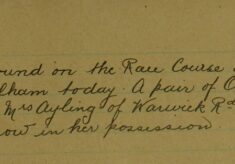 ound on the Race Course
lham today. A pair of
Mrs Ayling of Warwick Rd
ow in her possession.